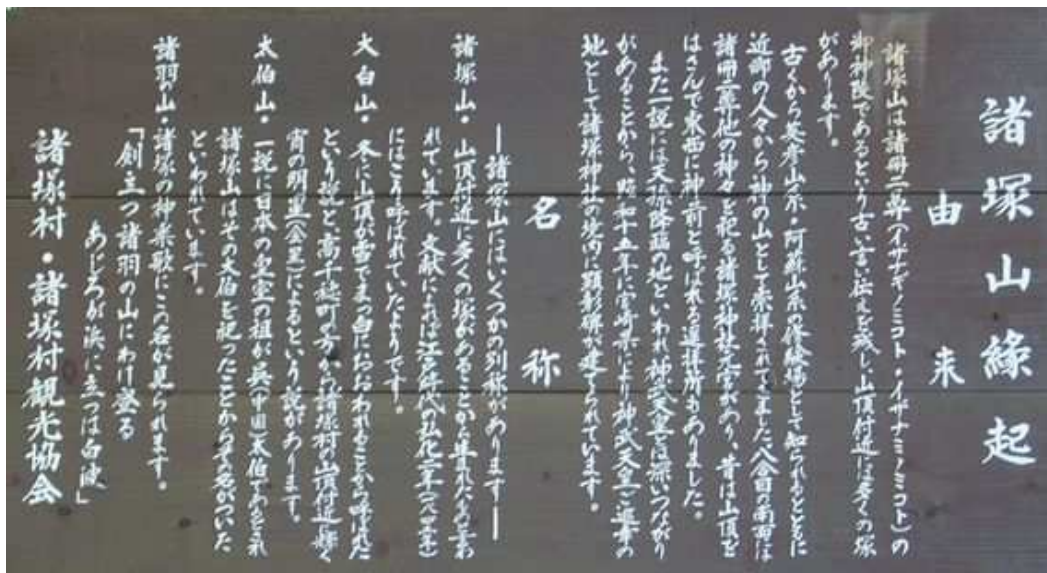 諸塚山縁起
由来
諸塚山は諸冊二尊(イザナギノミコト・イザナミノミコト)の
御神陵であるという古い言い伝えを残し、山頂付近には多くの塚
があります。
古くから英彦山系・阿蘇山系の修験場として知られるとともに
近郷の人々から神の山として崇拝されてきました。八合目の南面は
諸冊二尊他の神々を祀る諸塚神社元宮があり、昔は山頂を
はさんで東西に神前と呼ばれる遥拝所もありました。
また一説には天孫降臨の地といわれ神武天皇とは深いつながり
があることから、昭和十五年に宮崎県により神武天皇ご遺幸の
地として諸塚神社の境内に顕彰碑が建てられています。
名称
―諸塚山にはいくつかの別称があります―
諸塚山・山頂付近に多くの塚があることから生まれた名といわ
れています。文献によれば江戸時代の弘化二年(一八四五年)
にはこう呼ばれていたようです。
大白山・冬に山頂が雪でまっ白におおわれることから呼ばれた
という説と、高千穂町の方から諸塚村の山頂付近に輝く
宵の明星(金星)によるという説があります。
太伯山・一説に日本の皇室の祖が呉(中国)太伯であるとされ
諸塚山はその太伯を祀ったことからその名がついた
といわれています。
諸羽の山・諸塚の神楽歌にこの名が見られます。
「剣立つ諸羽の山にわけ登る
あじろが浜に立つは白波」
諸塚村・諸塚村観光協会